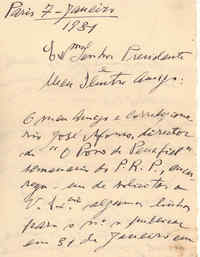 Paris 7-Janeiro
1931
Ex.mo Senhor Presidente
e
Meu Ilustre Amigo:
O meu Amigo e correligiona-
rio José Afonso, director
do "O Povo de Penafiel"
semanario do P.R.P., encar
rega-me de solicitar a
V. Ex.cia algumas linhas
para o nº a publicar
em 31 de Janeiro em